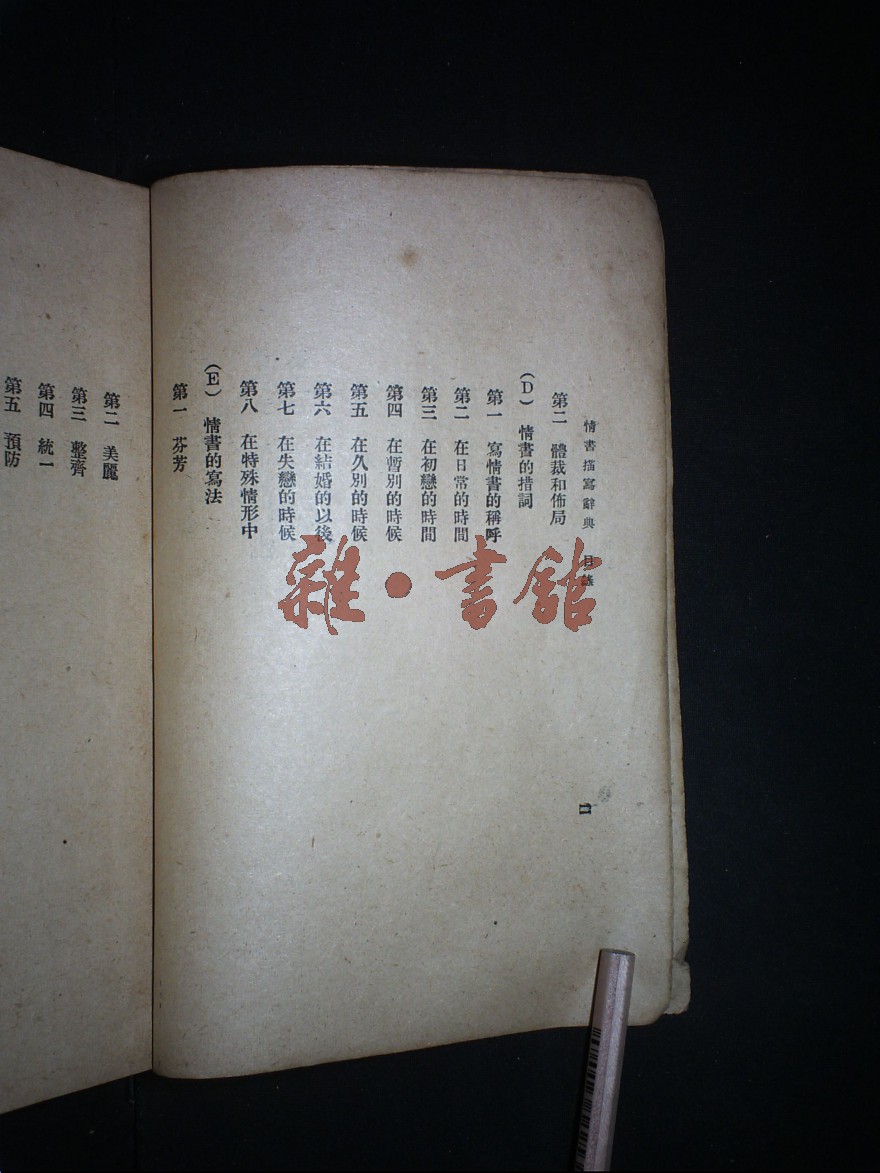 情書描寫辭典 目錄
第二 體裁和佈局
(D) 情書的措詞
第一 寫情書的稱呼
第二 在日常的時間
第三 在初戀的時間
第四 在暫別的時候
第五 在久別的時候
第六 在結婚的以後
第七 在失戀的時候
第八 在特殊情形中
(E) 情書的寫法
第一 芬芳
二
第二 美麗
第三 整齊
第四 統一
第五 預防
雜·書館